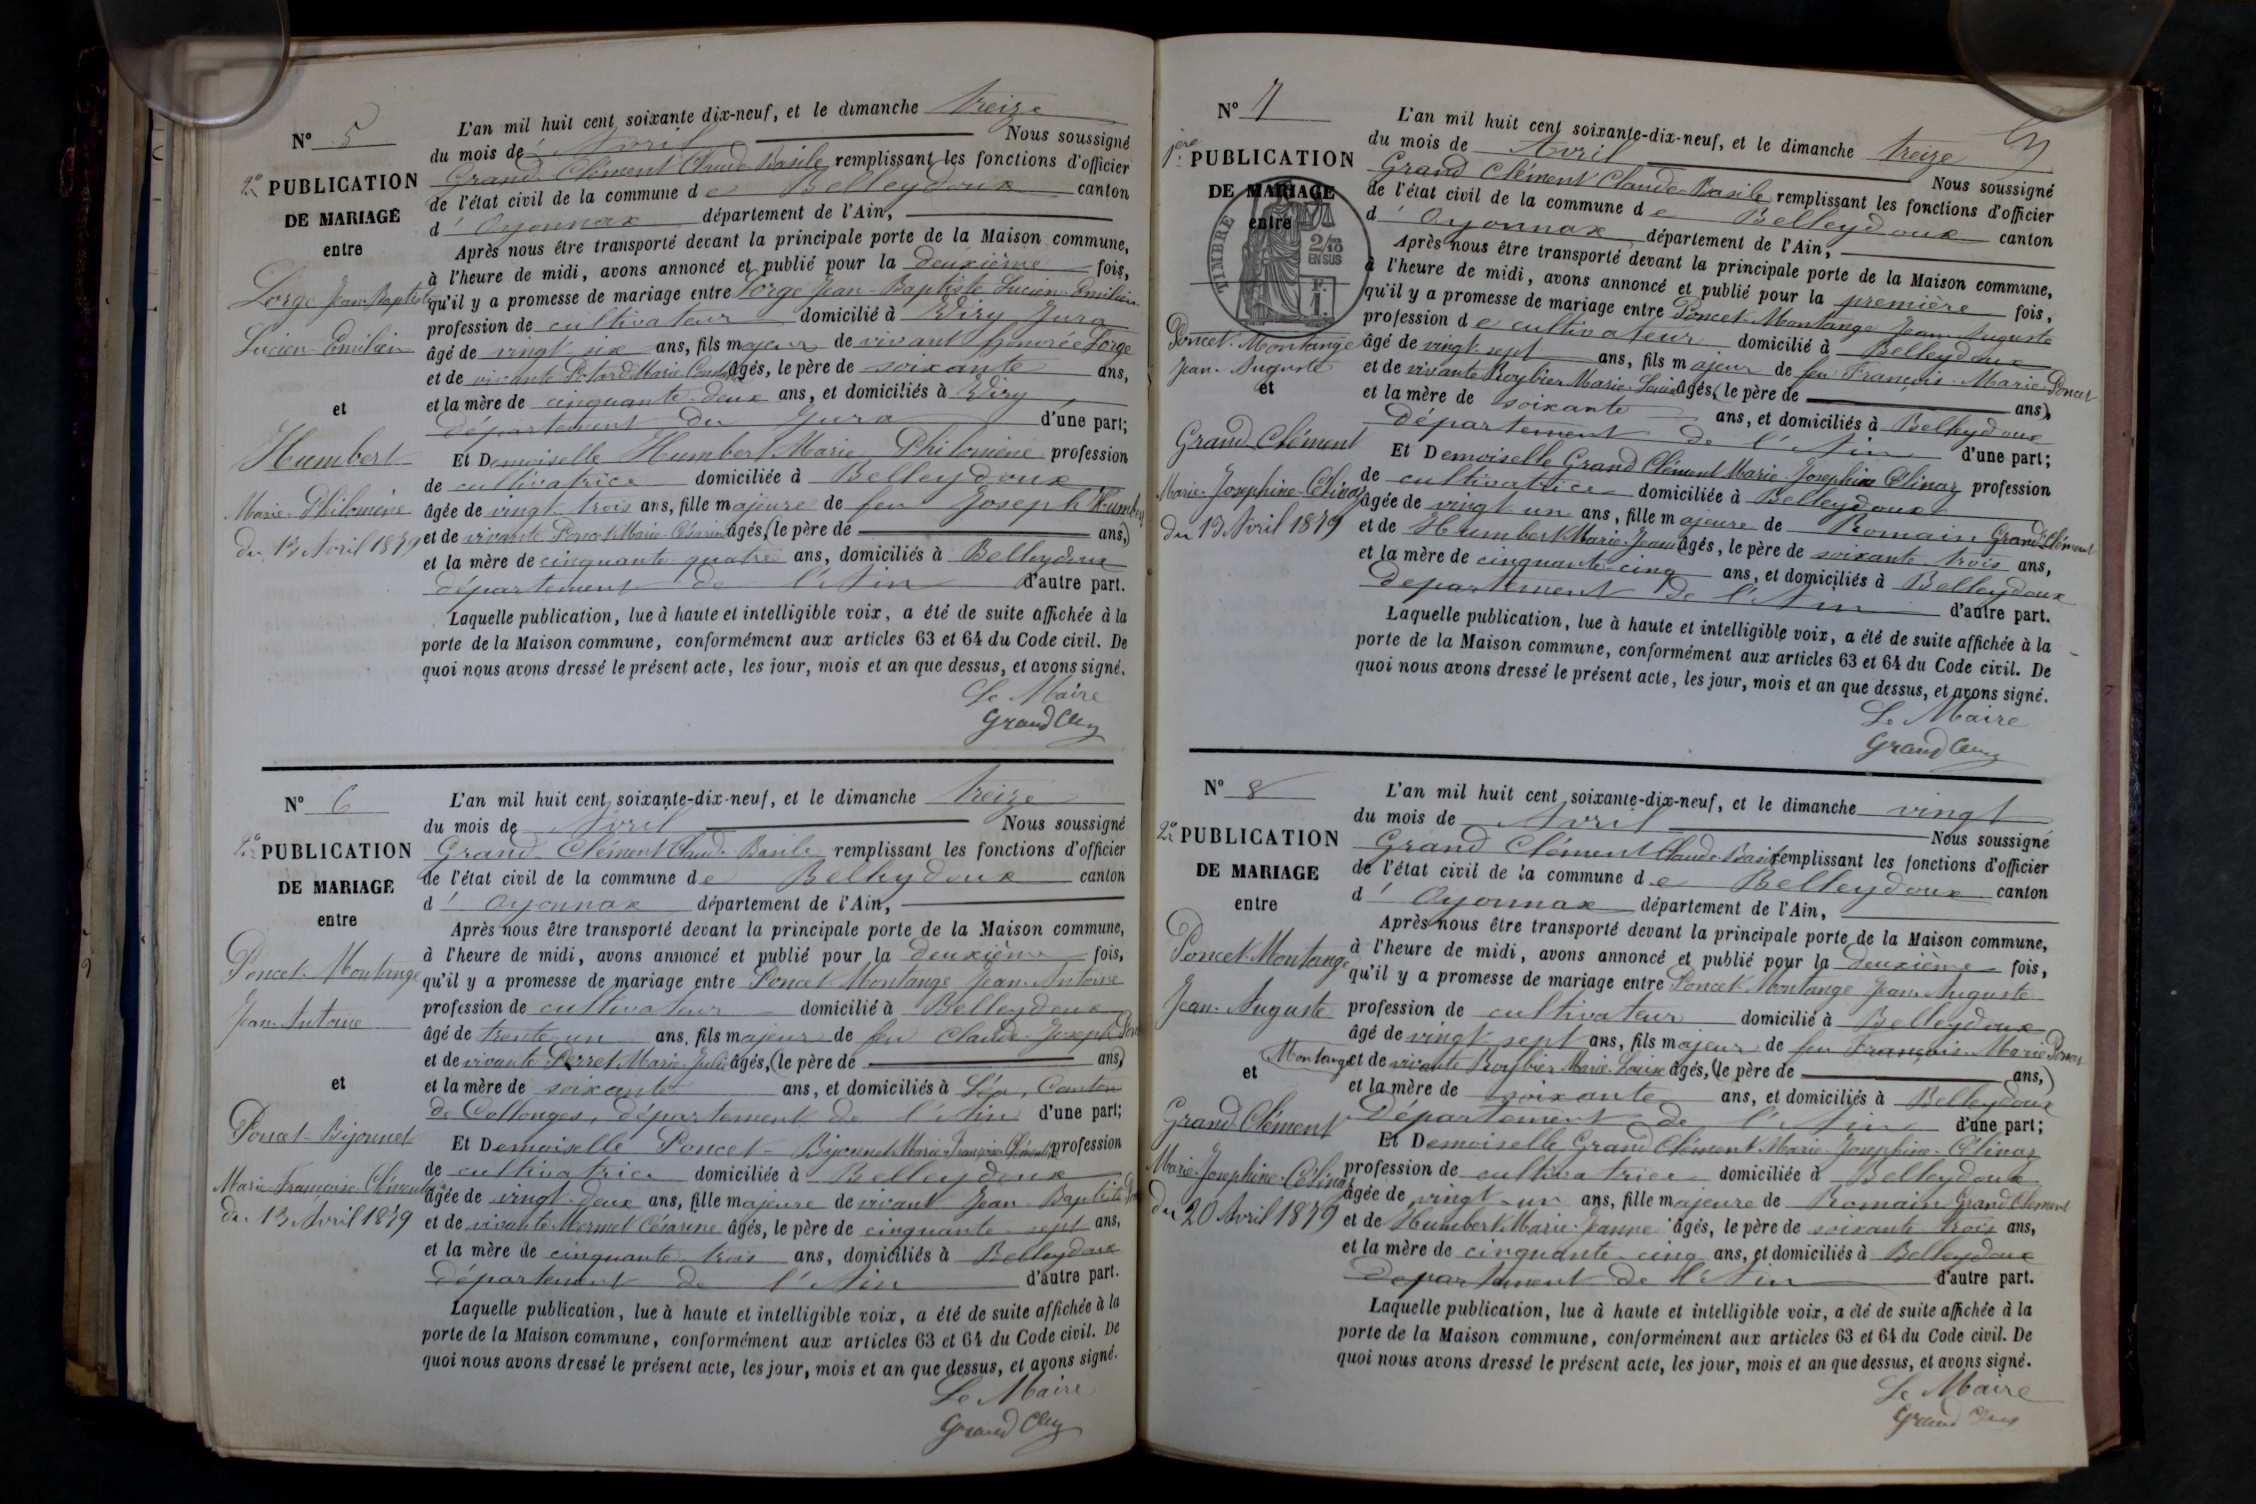 N° 5
2e PUBLICATION
DE MARIAGE
entre
Lorge Jean Baptiste
Lucien Emilien
et
Humbert
Marie Philomène
du 13 Avril 1879
L'an mil huit cent soixante dix-neuf, et le dimanche treize
du mois de Avril Nous soussigné
Grand Clément Claude Basile remplissant les fonctions d'officier
de l'état civil de la commune de Belleydoux canton
d'Oyonnax département de l'Ain,
Après nous être transporté devant la principale porte de la Maison commune,
à l'heure de midi, avons annoncé et publié pour la deuxième fois,
qu'il y a promesse de mariage entre Lorge Jean-Baptiste Lucien Emilien
profession de cultivateur domicilié à Viry Jura
âgé de vingt six ans, fils majeur de vivant Honorée Lorge
et de vivante Marie âgés, le père de soixante ans,
et la mère de cinquante-deux ans, et domiciliés à Viry
département du Jura d'une part;
Et Demoiselle Humbert Marie Philomène profession
de cultivatrice domiciliée à Belleydoux
âgée de vingt trois ans, fille majeure de feu Joseph Humbert
et de vivante Poncet Marie Césarine âgés, (le père de ans,)
et la mère de cinquante quatre ans, domiciliés à Belleydoux
département de l'Ain d'autre part.
Laquelle publication, lue à haute et intelligible voix, a été de suite affichée à la
porte de la Maison commune, conformément aux articles 63 et 64 du Code civil. De
quoi nous avons dressé le présent acte, les jour, mois et an que dessus, et avons signé.
Le Maire
Grand Clém
N° 6
2e PUBLICATION
DE MARIAGE
entre
Poncet-Montange
Jean-Antoine
et
Poncet-Bijonnet
Marie Françoise Clémentine
du 13 Avril 1879
L'an mil huit cent soixante-dix-neuf, et le dimanche treize
du mois de Avril Nous soussigné
Grand-Clément Claude Basile remplissant les fonctions d'officier
de l'état civil de la commune de Belleydoux canton
d'Oyonnax département de l'Ain,
Après nous être transporté devant la principale porte de la Maison commune,
à l'heure de midi, avons annoncé et publié pour la deuxième fois,
qu'il y a promesse de mariage entre Poncet Montange Jean-Antoine
profession de cultivateur domicilié à Belleydoux
âgé de trente-un ans, fils majeur de feu Claude-Joseph
et de vivante Perret Marie Julie âgés, (le père de ans,)
et la mère de soixante ans, et domiciliés à Léaz, Canton
de Collonges, département de l'Ain d'une part;
Et Demoiselle Poncet-Bijonnet Marie Françoise Clémentine profession
de cultivatrice domiciliée à Belleydoux
âgée de vingt-deux ans, fille majeure de vivant Jean Baptiste
et de vivante Mermet Césarine âgés, le père de cinquante-sept ans,
et la mère de cinquante-trois ans, domiciliés à Belleydoux
département de l'Ain d'autre part.
Laquelle publication, lue à haute et intelligible voix, a été de suite affichée à la
porte de la Maison commune, conformément aux articles 63 et 64 du Code civil. De
quoi nous avons dressé le présent acte, les jour, mois et an que dessus, et avons signé.
Le Maire
Grand Clém
N° 7
1ère PUBLICATION
DE MARIAGE
entre
TIMBRE
2/10
EN SUS
F.
1.
Poncet-Montange
Jean-Auguste
et
Grand Clément
Marie-Josephine-Célinaz
du 13 Avril 1879
L'an mil huit cent soixante-dix-neuf, et le dimanche treize
du mois de Avril Nous soussigné
Grand Clément Claude-Basile remplissant les fonctions d'officier
de l'état civil de la commune de Belleydoux canton
d'Oyonnax département de l'Ain,
Après nous être transporté devant la principale porte de la Maison commune,
à l'heure de midi, avons annoncé et publié pour la première fois,
qu'il y a promesse de mariage entre Poncet-Montange Jean-Auguste
profession de cultivateur domicilié à Belleydoux
âgé de vingt-sept ans, fils majeur de feu François-Marie Poncet
et de vivante Roybier Marie-Louise âgés, (le père de ans),
et la mère de soixante ans, et domiciliés à Belleydoux
Département de l'Ain d'une part;
Et Demoiselle Grand Clément Marie-Josephine Célinaz profession
de cultivatrice domiciliée à Belleydoux
âgée de vingt un ans, fille majeure de Romain Grand Clément
et de Humbert Marie-Jeanne âgés, le père de soixante-trois ans,
et la mère de cinquante-cinq ans, et domiciliés à Belleydoux
département de l'Ain d'autre part.
Laquelle publication, lue à haute et intelligible voix, a été de suite affichée à la
porte de la Maison commune, conformément aux articles 63 et 64 du Code civil. De
quoi nous avons dressé le présent acte, les jour, mois et an que dessus, et avons signé.
Le Maire
Grand Clém
N° 8
2e PUBLICATION
DE MARIAGE
entre
Poncet-Montange
Jean-Auguste
et
Grand Clément
Marie-Josephine-Célinaz
du 20 Avril 1879
L'an mil huit cent soixante-dix-neuf, et le dimanche vingt
du mois de Avril Nous soussigné
Grand Clément Claude Basile remplissant les fonctions d'officier
de l'état civil de la commune de Belleydoux canton
d'Oyonnax département de l'Ain,
Après nous être transporté devant la principale porte de la Maison commune,
à l'heure de midi, avons annoncé et publié pour la deuxième fois,
qu'il y a promesse de mariage entre Poncet-Montange Jean-Auguste
profession de cultivateur domicilié à Belleydoux
âgé de vingt-sept ans, fils majeur de feu François-Marie Poncet
Montange et de vivante Roybier Marie-Louise âgés, (le père de ans,)
et la mère de soixante ans, et domiciliés à Belleydoux
Département de l'Ain d'une part;
Et Demoiselle Grand Clément Marie-Josephine-Célinaz
profession de cultivatrice domiciliée à Belleydoux
âgée de vingt-un ans, fille majeure de Romain Grand Clément
et de Humbert Marie-Jeanne âgés, le père de soixante trois ans,
et la mère de cinquante-cinq ans, et domiciliés à Belleydoux
Département de l'Ain d'autre part.
Laquelle publication, lue à haute et intelligible voix, a été de suite affichée à la
porte de la Maison commune, conformément aux articles 63 et 64 du Code civil. De
quoi nous avons dressé le présent acte, les jour, mois et an que dessus, et avons signé.
Le Maire
Grand Clém